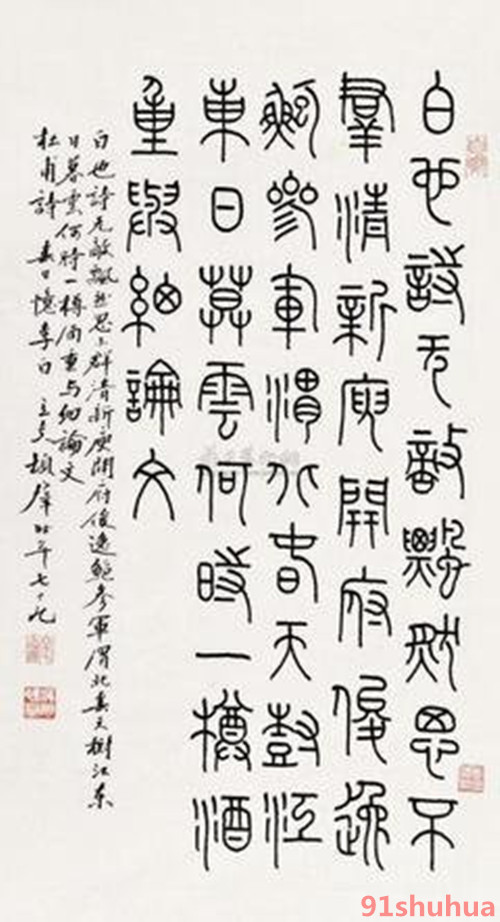 白也詩无敵飄然思不
羣清新庾開府俊逸
鮑參軍渭北春天樹江
東日莫雲何時一樽酒
重與細論文
白也詩无敵飘然思不群清新庾開府俊逸鮑参軍渭北春天樹江東
日暮雲何時一樽酒重与細論文
杜甫詩 春日憶李白 年七十九
91shuhua